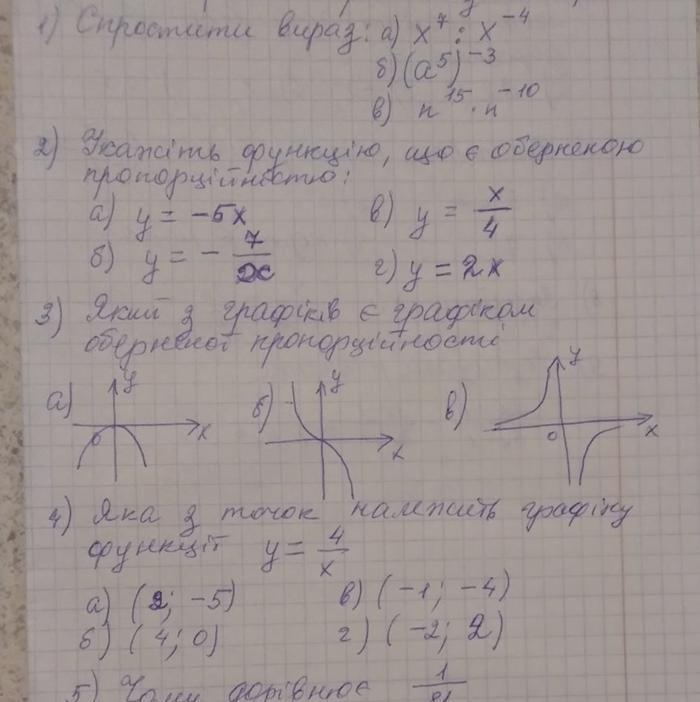 1) Спростити вираз: а) x⁷ : x⁻⁴
б) (a⁵)⁻³
в) n¹⁵ · n⁻¹⁰
2) Укажіть функцію, що є оберненою
пропорційністю:
а) y = -5x в) y = x/4
б) y = - 7/x г) y = 2x
3) Який з графіків є графіком
оберненої пропорційності
а) y x 0 б) y x в) y x 0
4) Яка з точок належить графіку
функції y = 4/x
а) (2; -5) в) (-1; -4)
б) (4; 0) г) (-2; 2)
5) Чому дорівнює 1/81